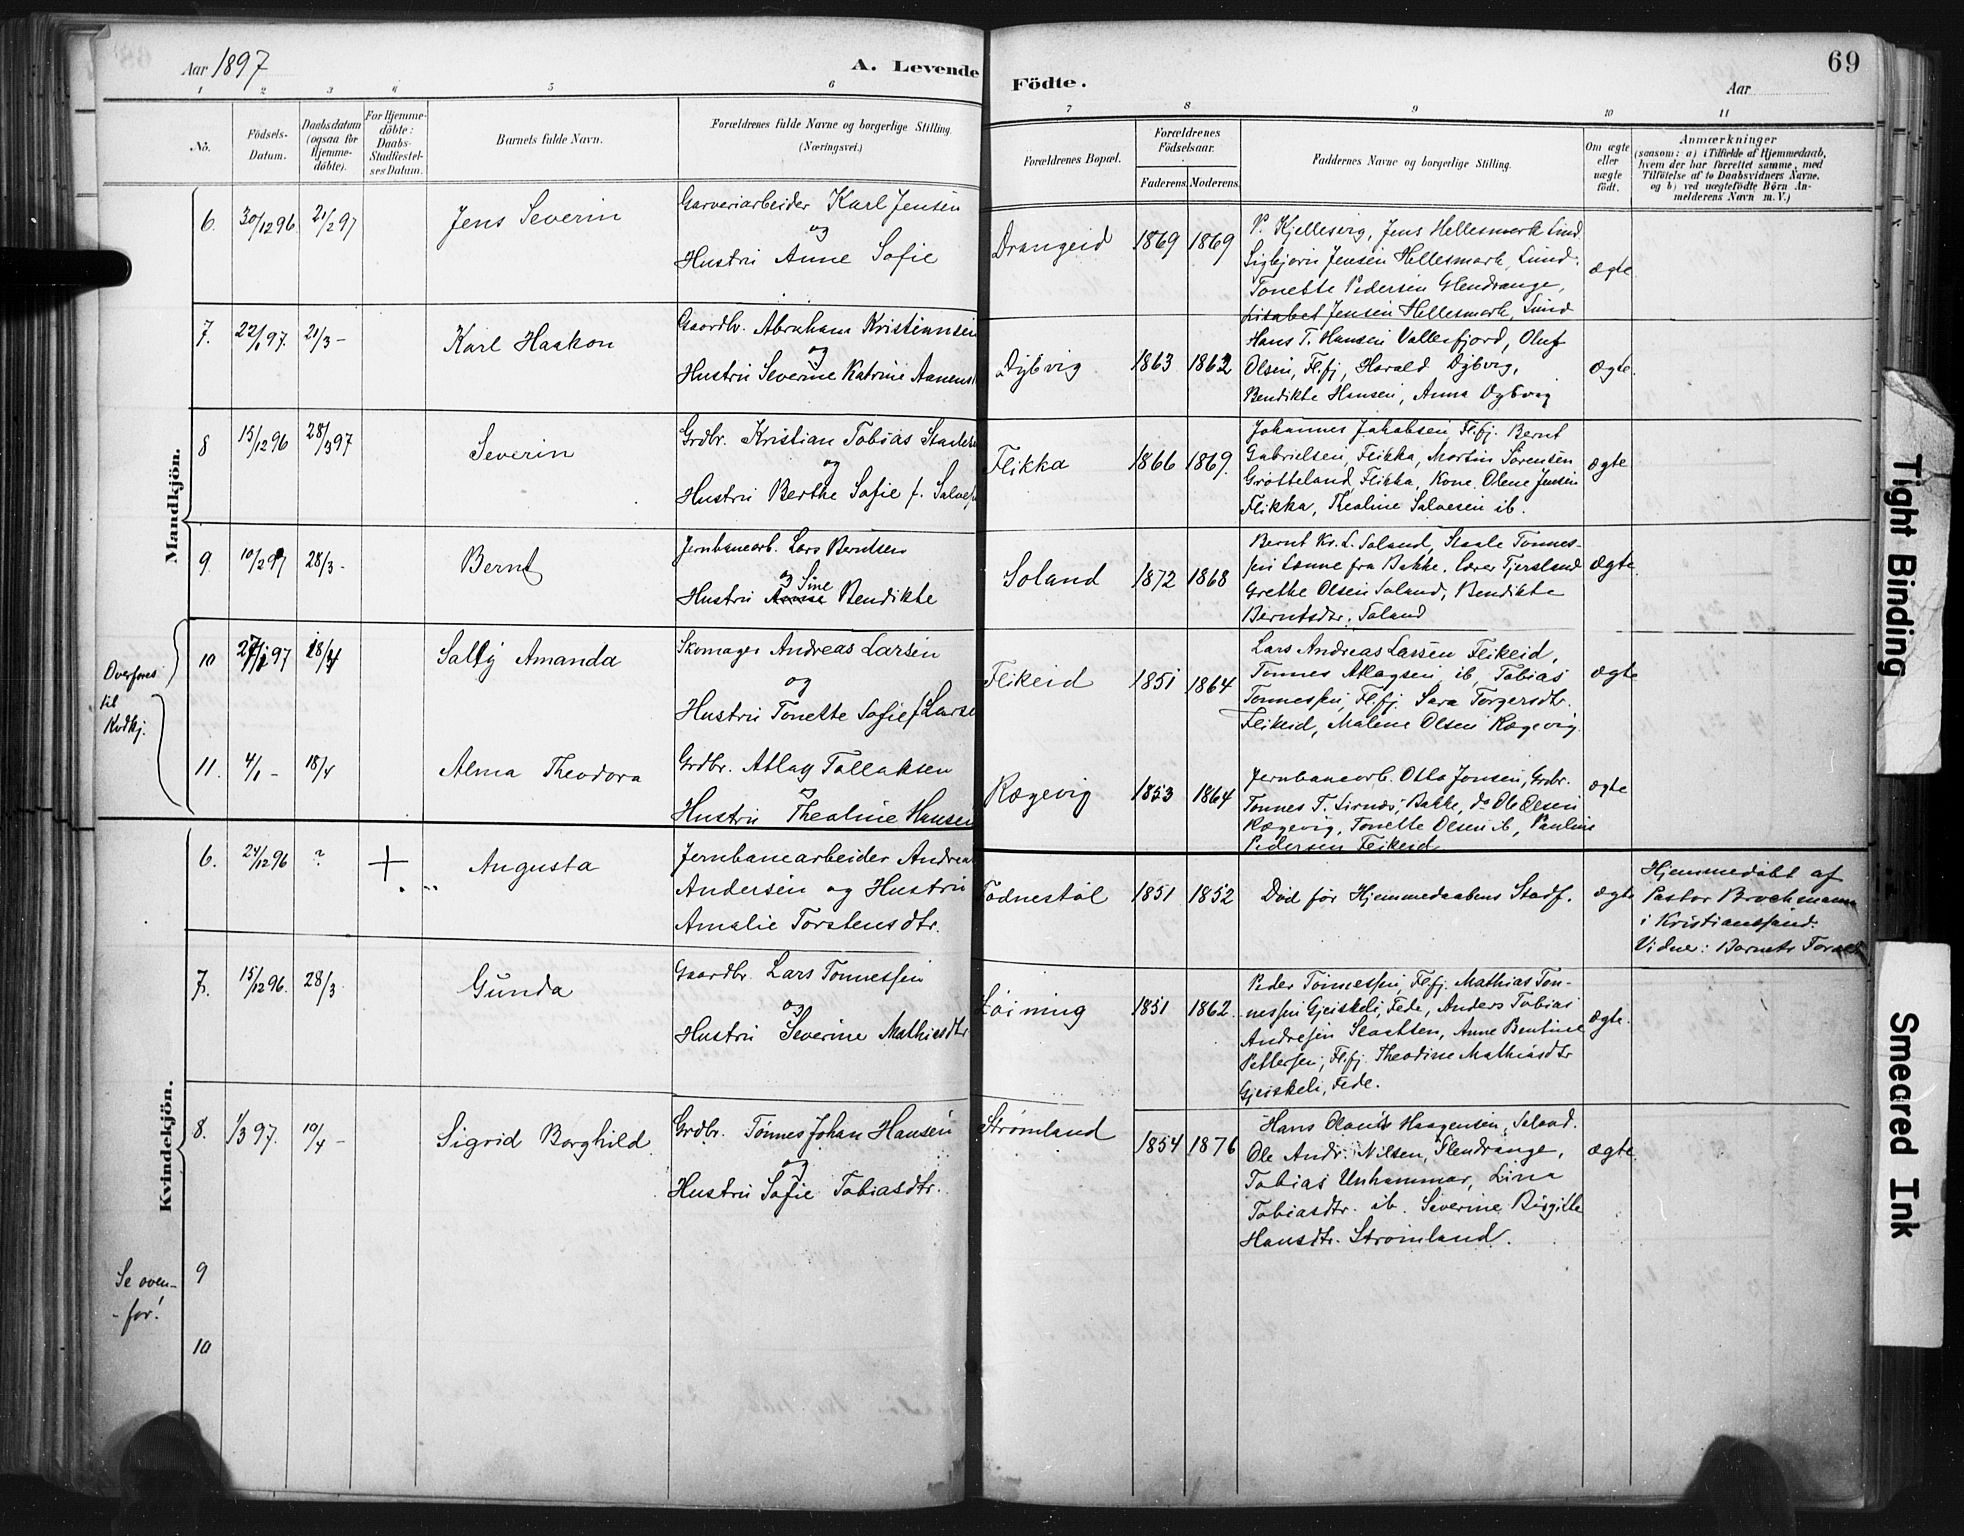 Aar 1897
A. Levende Födte.
Aar
69
1 2 3 4 5 6 7 8 9 10 11
No.
Födsels-
Datum.
Daabsdatum
(ogsaa for
Hjemme-
döbte).
For Hjemme-
döbte:
Daabs-
Stadfæstel-
ses Datum.
Barnets fulde Navn.
Forældrenes fulde Navne og borgerlige Stilling.
(Næringsvei.)
Forældrenes Bopæl.
Forældrenes
Födselsaar.
Faderens. Moderens.
Faddernes Navne og borgerlige Stilling.
Om ægte
eller
uægte
födt.
Anmærkninger
(saasom: a) i Tilfælde af Hjemmedaab,
hvem der har forrettet samme, med
Tilföielse af to Daabsvidners Navne.
og b) ved uægtefödte Börn An-
melderens Navn m. V.)
Mandkjön.
6. 30/12 96 21/2 97
Jens Severin
Garveriarbeider Karl Jensen
og
Hustru Anne Sofie
Drangeid 1869 1869
P. Kjellesvig, Jens Hellesmark Lund
Sigbjørn Jensen Hellesmark, Lund.
Tonette Pedersen Glendrange,
Lisabet Jensen Hellesmark, Lund
ægte
7. 22/1 97. 21/3 -
Karl Haakon
Gaardbr. Abraham Kristiansen
og
Hustru Severine Katrine Aanens
Dybvig 1863 1862
Hans T. Hansen Vollesfjord, Oluf
Olsen, Flfj, Harald Dybvig,
Bendikte Hansen, Anna Dybvig
ægte.
8 15/12 96 28/3 97
Severin
Grdbr. Kristian Tobias
og
Hustru Berthe Sofie f. Salves
Flikka 1866 1869.
Johannes Jakobsen Flfj. Bernt
Gabrielsen, Flikka, Martin Sørensen
Grøtteland, Flikka, Kone Olene Jensen
Flikka, Thealine Salvesen ib.
ægte
9. 10/2 97 28/3 -
Bernt
Jernbanearb. Lars Berntsen
og Sine
Hustru Bendikte
Soland 1872 1868
Bernt Kr. L. Soland, Staale Tønnes-
sen Lønne fra Bakke. Lars Tjersland
Grethe Olsen Soland, Bendikte
Berntsdtr. Soland
ægte.
Overføres
til
Kvdkj.
10 97 18/4
Sally Amanda
Skomager Andreas Larsen
og
Hustru Tonette Sofie f Larse
Flikeid 1851 1864
Lars Andreas Larsen Flikeid,
Tønnes Atlagsen ib, Tobias
Tønnessen, Flfj. Sara Torgersdtr.
Flikeid, Malene Olsen Rægevig.
ægte
11. 4/1 - 18/4
Alma Theodora
Grdbr. Atlag Tollaksen
og
Hustru Thealine Hansen
Rægevig 1853 1864
Jernbanearb. Otto Jonsen, Grdbr.
Tønnes T. Sirnæs, Bakke, do Ole Olsen
Rægevig, Tonette Olsen ib, Pauline
Pedersen Flikeid
ægte
Kvindekjön.
6. 24/12 96 ? +
Angusta
Jernbanearbeider Andreas
Andersen og Hustru
Amalie Torstensdtr.
Todnestøl 1851 1852
Død før Hjemmedaabens Stadf.
ægte
Hjemmedøbt af
Pastor Brochmann
i Kristianssand.
Vidne: Barnets
7. 15/12 96. 28/3
Gunda
Gaardbr. Lars Tønnessen
og
Hustru Severine Mathiesdtr
Løining 1851 1862.
Peder Tønnessen, Flfj. Mathias Tøn-
nessen Gjeiskeli, Fede, Anders Tobias
Andresen Slaatten, Anne Bentine
Pettersen, Flfj. Theodine Mathiasdtr
Gjeiskeli, Fede.
ægte.
8. 1/3 97. 19/4 -
Sigrid Borghild.
Grdbr. Tønnes Johan Hansen
og
Hustru Sofie Tobiasdtr.
Strømland 1854 1876
Hans Olaus Haagensen, Soland.
Ole Andr. Nilsen, Flendrange,
Tobias Unhammer, Lina
Tobiasdtr. ib. Severine Birgitte
Hansdtr. Strømland.
ægte.
Se oven-
-for!
9
10
Tight Binding
Smeared Ink